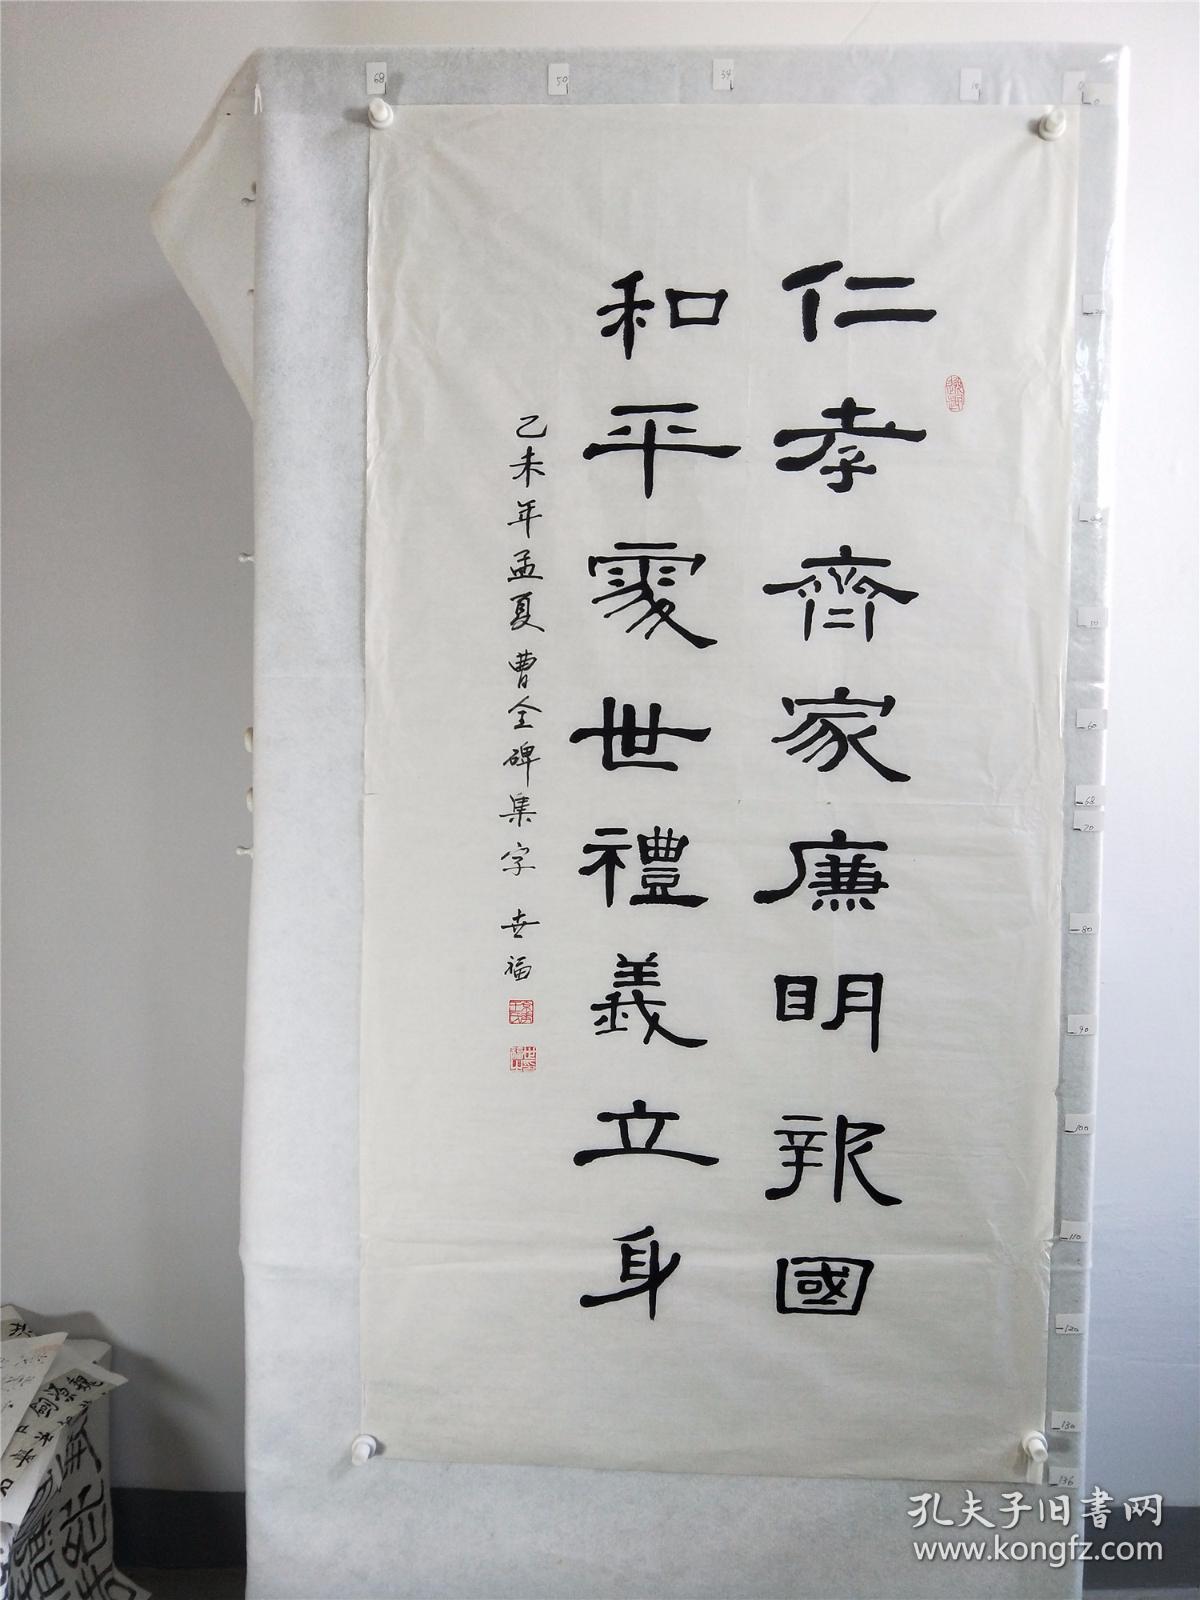 仁孝齊家廉明報國
和平處世禮義立身
乙未年孟夏曹全碑集字 世福
68
50
34
10
0
0
20
50
60
68
70
80
90
100
110
120
130
136
孔夫子旧書网
www.kongfz.com